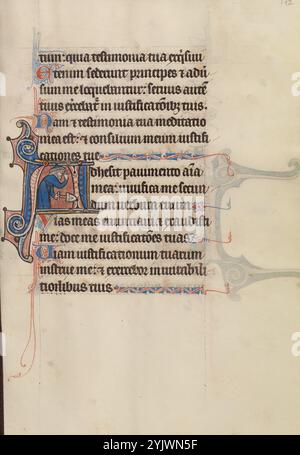 tum: quia testimonia tua exqsiui
Etenim sederunt principes et aduer
sum me loquebantur: seruus autem
tuus exercebat̃ in iustificatiõibꝫ tuis.
Nam et testimonia tua meditatio
mea est: et consilium meum iustifi
cationes tue
Adhesit pauimento aĩa
mea: uiuifica me secun
dum uerbum tuum
Vias meas enunciaui et exaudisti
me: doce me iustificatões tuas.
Uiam iustificationum tuarum
instrue me: et exercebor in mirabili
bus tuis
2YJWN5F